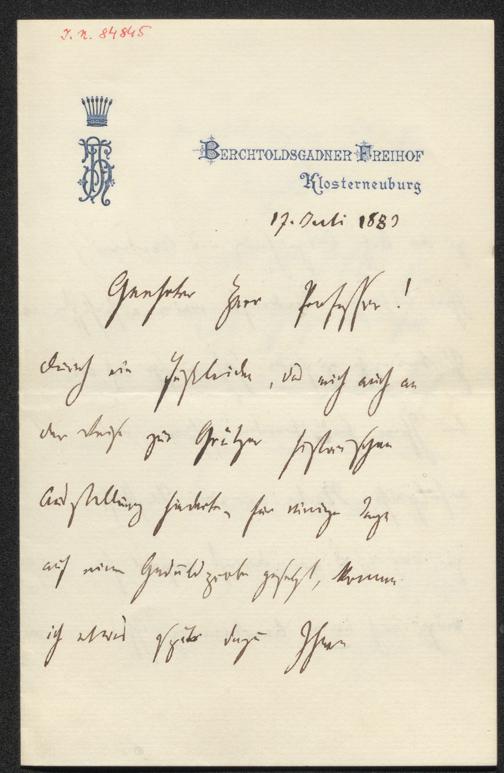 I. N. 84845
BERCHTOLDSGADNER FREIHOF
Klosterneuburg
17. Juli 1883
Geehrter Herr Professor!
Durch ein Fußleiden, das mich auch an
der Reise zur Grätzer historischen
Ausstellung hinderte, für einige Tage
auf eine Geduldprobe gesetzt, komme
ich etwas spät dazu Ihnen